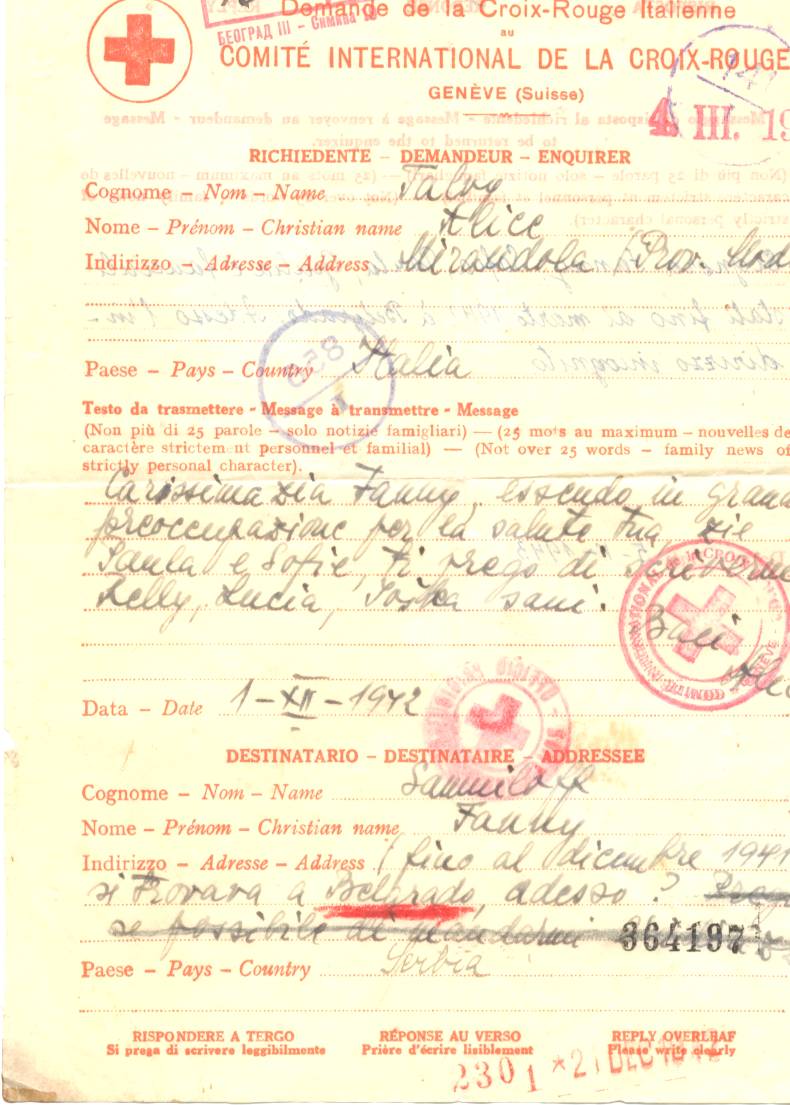 Demande de la Croix-Rouge Italienne
БЕОГРАД III - Симина
au
COMITÉ INTERNATIONAL DE LA CROIX-ROUGE
GENÈVE (Suisse)
4 III. 19
RICHIEDENTE - DEMANDEUR - ENQUIRER
Cognome - Nom - Name Talvy
Nome - Prénom - Christian name Alice
Indirizzo - Adresse - Address Mirandola (Prov. Mod
Paese - Pays - Country Italia
858
Testo da trasmettere - Message à transmettre - Message
(Non più di 25 parole - solo notizie famigliari) — (25 mots au maximum - nouvelles de
caractère strictement personnel et familial) — (Not over 25 words - family news of
strictly personal character).
Carissima zia Fanny, essendo in grand
preoccupazione per la salute tua, zie
Paula e Sofie, ti prego di scriverme
Nelly, Lucia, Joška sani.
Baci
Data - Date 1-XII-1942
DESTINATARIO - DESTINATAIRE - ADDRESSEE
Cognome - Nom - Name Samuiloff
Nome - Prénom - Christian name Fanny
Indirizzo - Adresse - Address (fino al dicembre 1941
si trovava a Belgrado, adesso?
se possibile di mandarmi
364197
Paese - Pays - Country Serbia
RISPONDERE A TERGO RÉPONSE AU VERSO REPLY OVERLEAF
Si prega di scrivere leggibilmente Prière d'écrire lisiblement Please write clearly
2301 * 21 DEC 1942